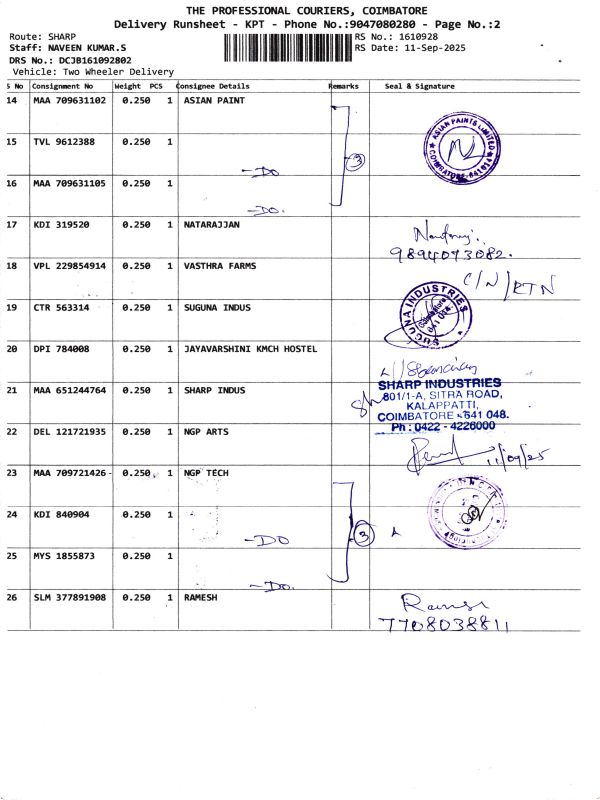 THE PROFESSIONAL COURIERS, COIMBATORE
Delivery Runsheet - KPT - Phone No.:9047080280 - Page No.:2
Route: SHARP RS No.: 1610928
Staff: NAVEEN KUMAR.S RS Date: 11-Sep-2025
DRS No.: DCJB161092802
Vehicle: Two Wheeler Delivery
S No Consignment No Weight PCS Consignee Details Remarks Seal & Signature
14 MAA 709631102 0.250 1 ASIAN PAINT
ASIAN PAINTS LIMITED
COIMBATORE - 641 014
15 TVL 9612388 0.250 1
- Do 3
16 MAA 709631105 0.250 1
- Do.
17 KDI 319520 0.250 1 NATARAJJAN
9894073082.
18 VPL 229854914 0.250 1 VASTHRA FARMS
C/N/RTN
19 CTR 563314 0.250 1 SUGUNA INDUS
SUGUNA INDUSTRIES
Coimbatore
641 014
20 DPI 784008 0.250 1 JAYAVARSHINI KMCH HOSTEL
21 MAA 651244764 0.250 1 SHARP INDUS
SHARP INDUSTRIES
801/1-A, SITRA ROAD,
KALAPPATTI,
COIMBATORE - 641 048.
Ph : 0422 - 4226000
22 DEL 121721935 0.250 1 NGP ARTS
11/09/25
23 MAA 709721426 0.250 1 NGP TECH
24 KDI 840904 0.250 1
- Do 3
25 MYS 1855873 0.250 1
- Do.
26 SLM 377891908 0.250 1 RAMESH
7708038811